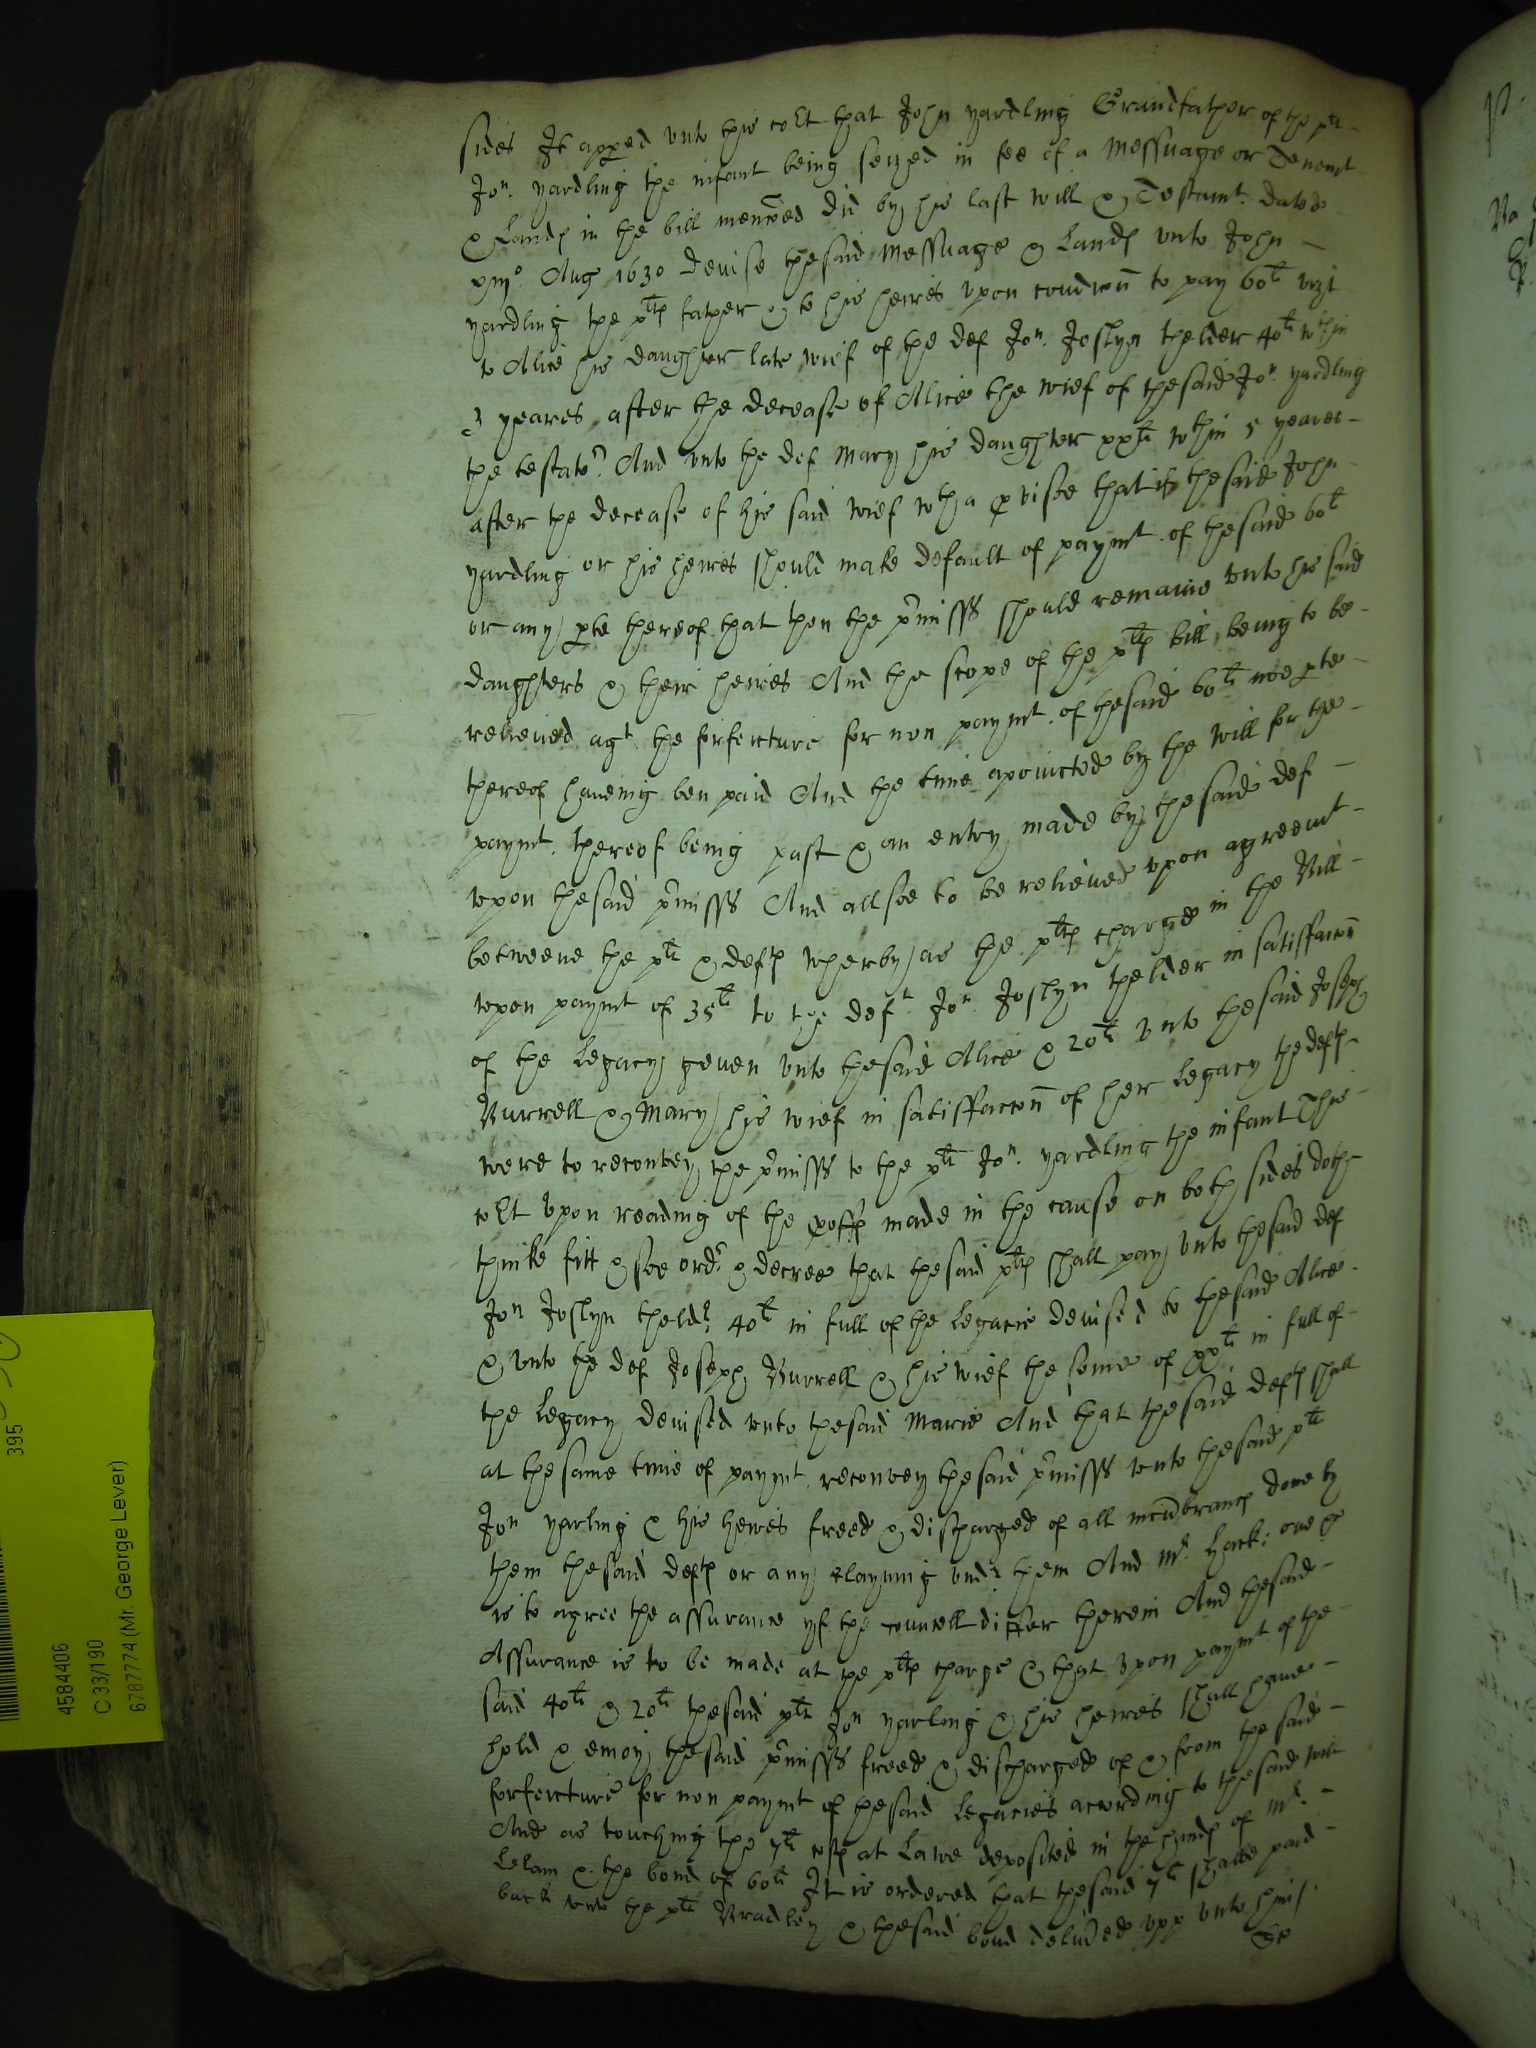 sides It apped unto this coĪt that John yardling Grandfather of the plt
Jon. yardling the infant being seized in fee of a Messuage or Tenemt
& Lands in the bill menc̃oed did by his last will & Testamt. dated
Aug 1630 devise the said Messuage & Lands unto John
yardling the plts father & to his heires upon condicon̄ to pay 60li vizt
to Alice his daughter late wief of the def Jon. Joslyn thelder 40li wthin
3 yeares after the decease of Alice the wief of the said Jon. yardling
the testator And unto the def Mary his daughter xxli wthin 5 yeares
after the decease of his said wief wth a pviso that if the said John
yardling or his heires should make default of paymt. of the said 60li
or any pte thereof that then the pmisss should remaine unto his said
daughters & their heires And the scope of the plts bill being to be
relieved agt. the forfeiture for non paymt. of the said 60li noe pte
thereof haveing ben paid And the time apointed by the will for the
paymt. thereof being past & an entry made by the said def
upon the said pmisss And allsoe to be relieved upon agreemt
betweene the plt & defts wherby as the plts charge in the Bill
upon paymt of 35li to the deft. Jon. Joslyn thelder in satisfaccon̄
of the Legacy geven unto the said Alice & 20li unto the said Joseph
Burrell & Mary his wief in satisfaccon̄ of her Legacy the defts
were to reconvey the pmisss to the plt Jon. yardling the infant This
coĪt upon reading of the pofes made in the cause on both sides doth
thinke fitt & soe ordr & decree that the said plts shall pay unto the said def
Jon Joslyn theldr 40li in full of the Legacie devised to the said Alice
& unto the def Joseph Burrell & his wief the some of xxli in full of
the Legacy devised unto the said Marie And that the said defts shall
at the same time of paymt. reconvey the said pmisss unto the said plt
Jon yarling & his heires freed & discharged of all incūbrancs done by
them the said defts or any clayming undr them And Mr. Hack: one &c
is to agree the assurance yf the councell differ therein And the said
Assurance is to be made at the plts charge & that upon paymt of the
said 40li & 20li the said plt Jon yarling & his heires shall have
hold & enioy the said pmisss freed & discharged of & from the said
forfeiture for non paymt of the said Legacies according to the said will
And as touching the 7li costs at Lawe deposited in the hands of Mr.
& the bond of 60li It is ordered that the said 7li shalbe paid
back unto the plt Bradley & the said bond delivred upp unto him /.
395
4584406
C 33/190
6787774 (Mr. George Lever)